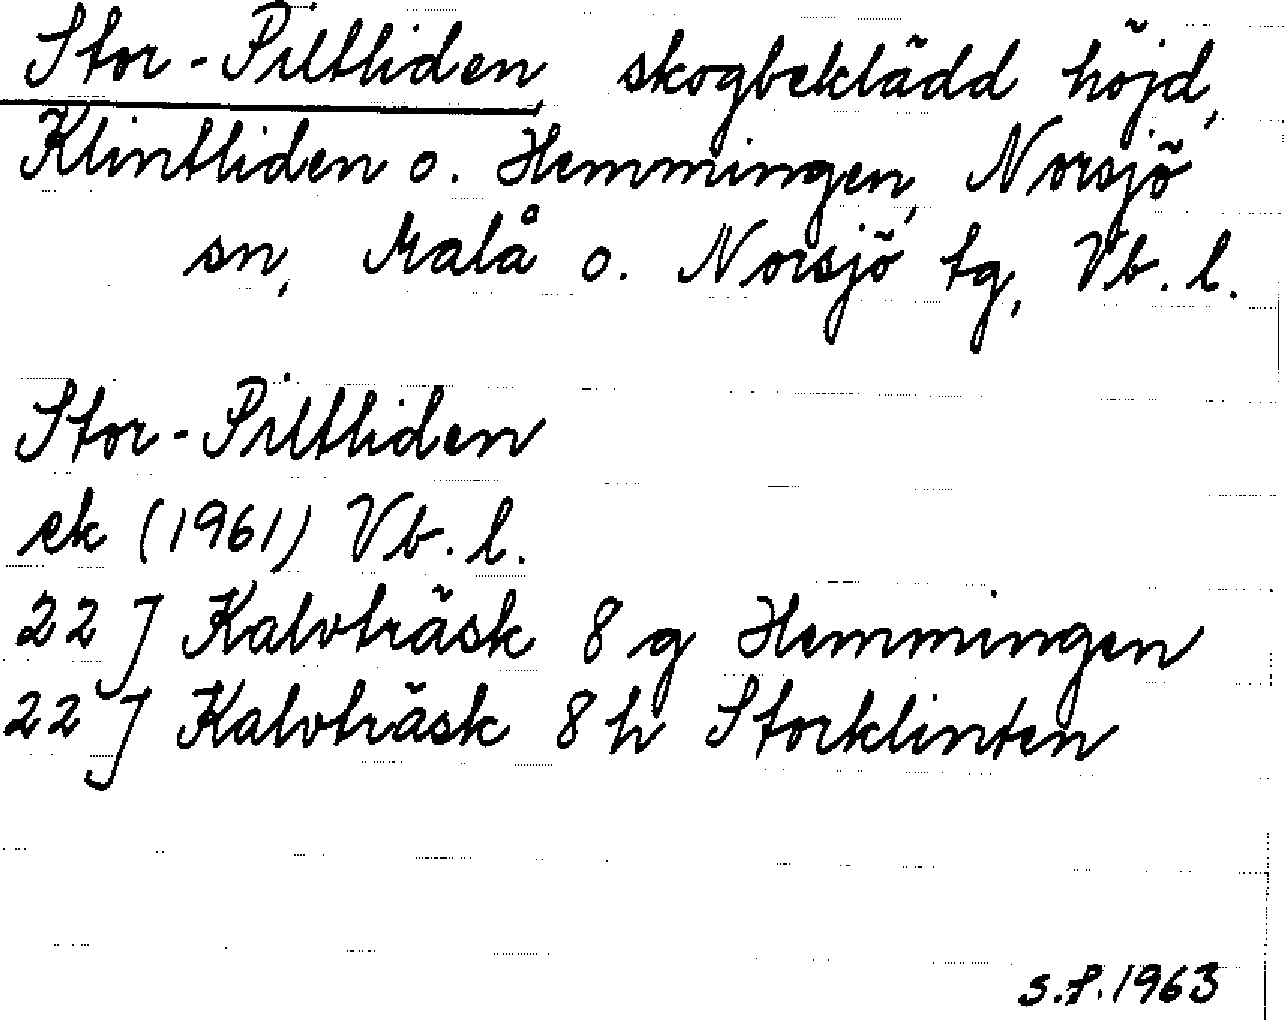 Stor-Piltliden, skogbeklädd höjd,
Klintliden o. Hemmingen, Norsjö
sn, Malå o. Norsjö tg, Vb. l.
Stor-Piltliden
ek (1961) Vb. l.
22 J Kalvträsk 8 g Hemmingen
22 J Kalvträsk 8 h Storklinten
1963